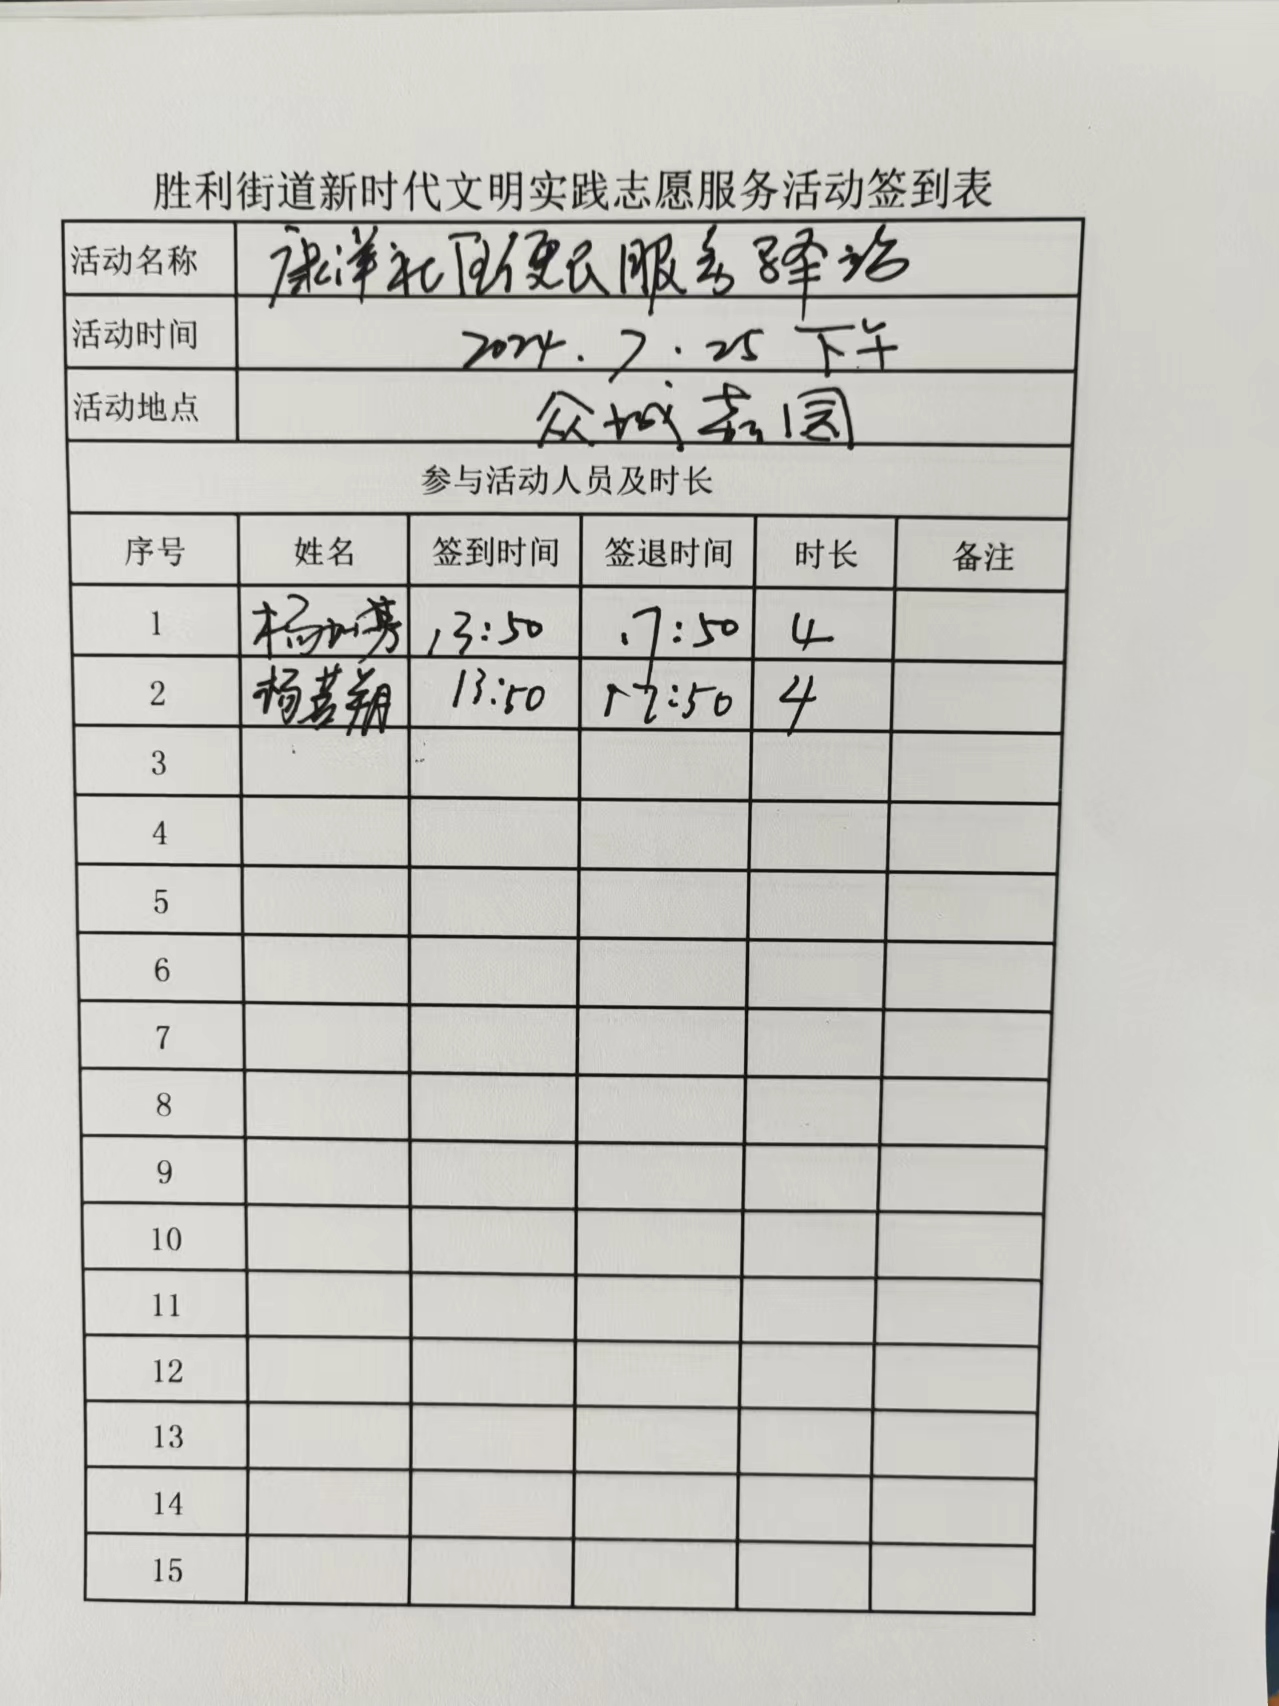 胜利街道新时代文明实践志愿服务活动签到表
活动名称 康洋社区便民服务驿站
活动时间 2024.7.25 下午
活动地点 众城嘉园
参与活动人员及时长
序号 姓名 签到时间 签退时间 时长 备注
1 13:50 17:50 4
2 杨茗朔 13:50 17:50 4
3
4
5
6
7
8
9
10
11
12
13
14
15